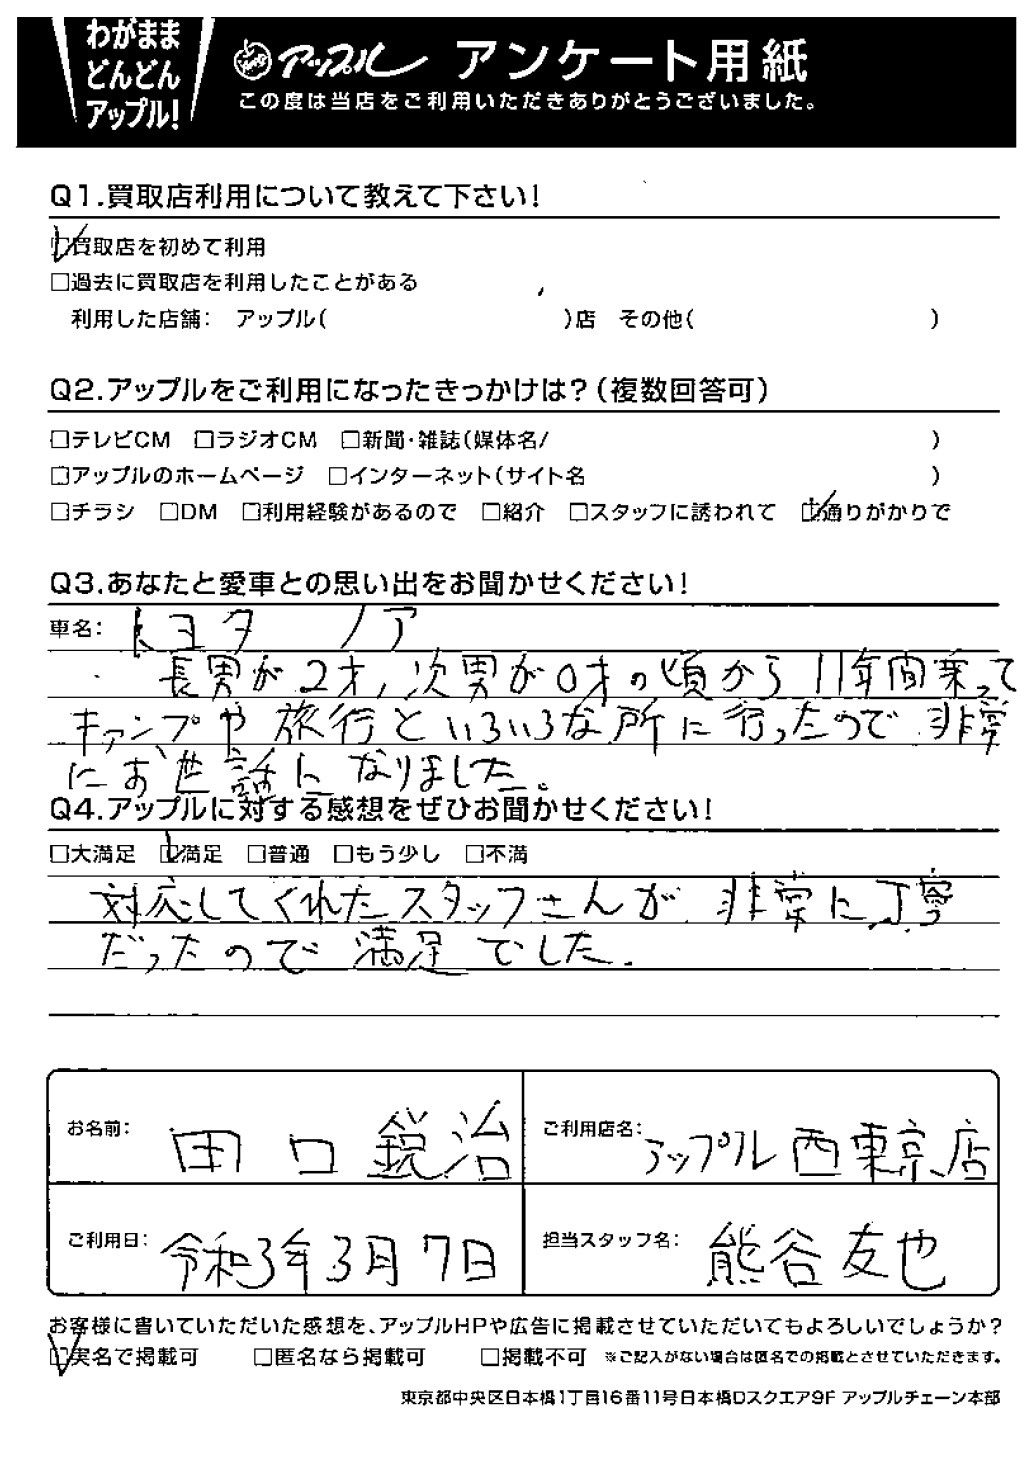 わがまま
どんどん
アップル!
アップル アンケート用紙
この度は当店をご利用いただきありがとうございました。
Q1.買取店利用について教えて下さい!
☑買取店を初めて利用
□過去に買取店を利用したことがある
利用した店舗: アップル( )店 その他( )
Q2.アップルをご利用になったきっかけは?(複数回答可)
□テレビCM □ラジオCM □新聞・雑誌(媒体名/ )
□アップルのホームページ □インターネット(サイト名 )
□チラシ □DM □利用経験があるので □紹介 □スタッフに誘われて ☑通りがかりで
Q3.あなたと愛車との思い出をお聞かせください!
車名: トヨタ ノア
長男が2才、次男が0才の頃から11年間乗って
キャンプや旅行といろいろな所に行ったので非常
にお世話になりました。
Q4.アップルに対する感想をぜひお聞かせください!
□大満足 ☑満足 □普通 □もう少し □不満
対応してくれたスタッフさんが非常に丁寧
だったので満足でした.
お名前: 田口鋭治
ご利用店名: アップル西東京店
ご利用日: 令和3年3月7日
担当スタッフ名: 熊谷友也
お客様に書いていただいた感想を、アップルHPや広告に掲載させていただいてもよろしいでしょうか?
☑実名で掲載可 □匿名なら掲載可 □掲載不可 ※ご記入がない場合は匿名での掲載とさせていただきます。
東京都中央区日本橋1丁目16番11号日本橋Dスクエア9F アップルチェーン本部